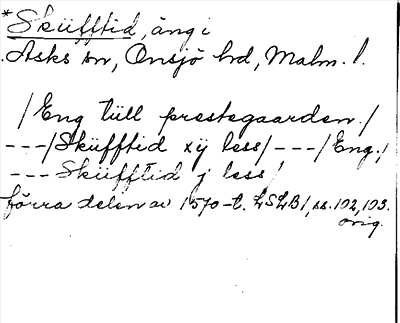 *Sküfftid, äng i
Asks sn, Onsjö hd, Malm. l.
/Eng tüll prestegaarden./
---/Sküfftid xÿ less/---/Eng./
---Sküfftid j less/
förra delen av 1570-t. LSLB1, ss. 102, 103.
orig.